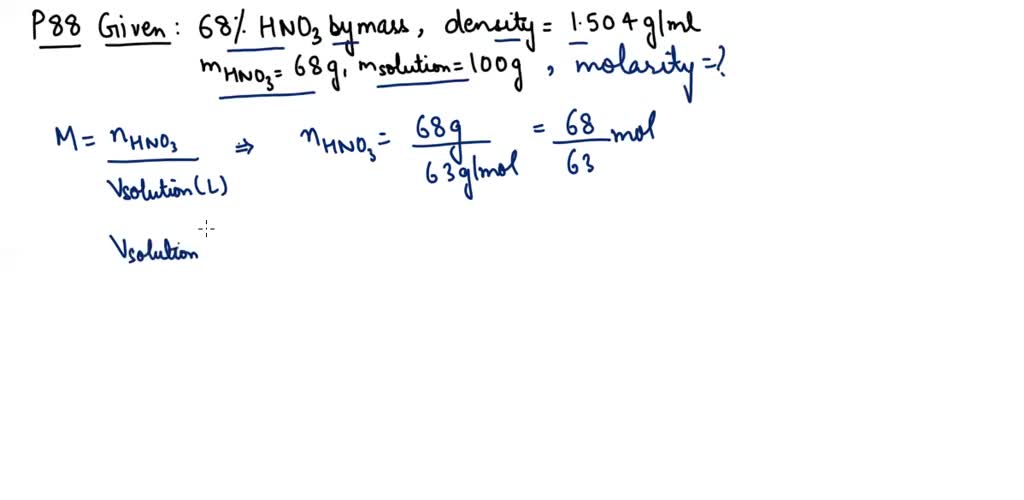 P88 Given: 68% HNO₃ by mass, density = 1.504 g/ml
mHNO₃ = 68g, msolution = 100g, molarity = ?
M = nHNO₃ / Vsolution(L) ⇒ nHNO₃ = 68g / 63g/mol = 68/63 mol
Vsolution